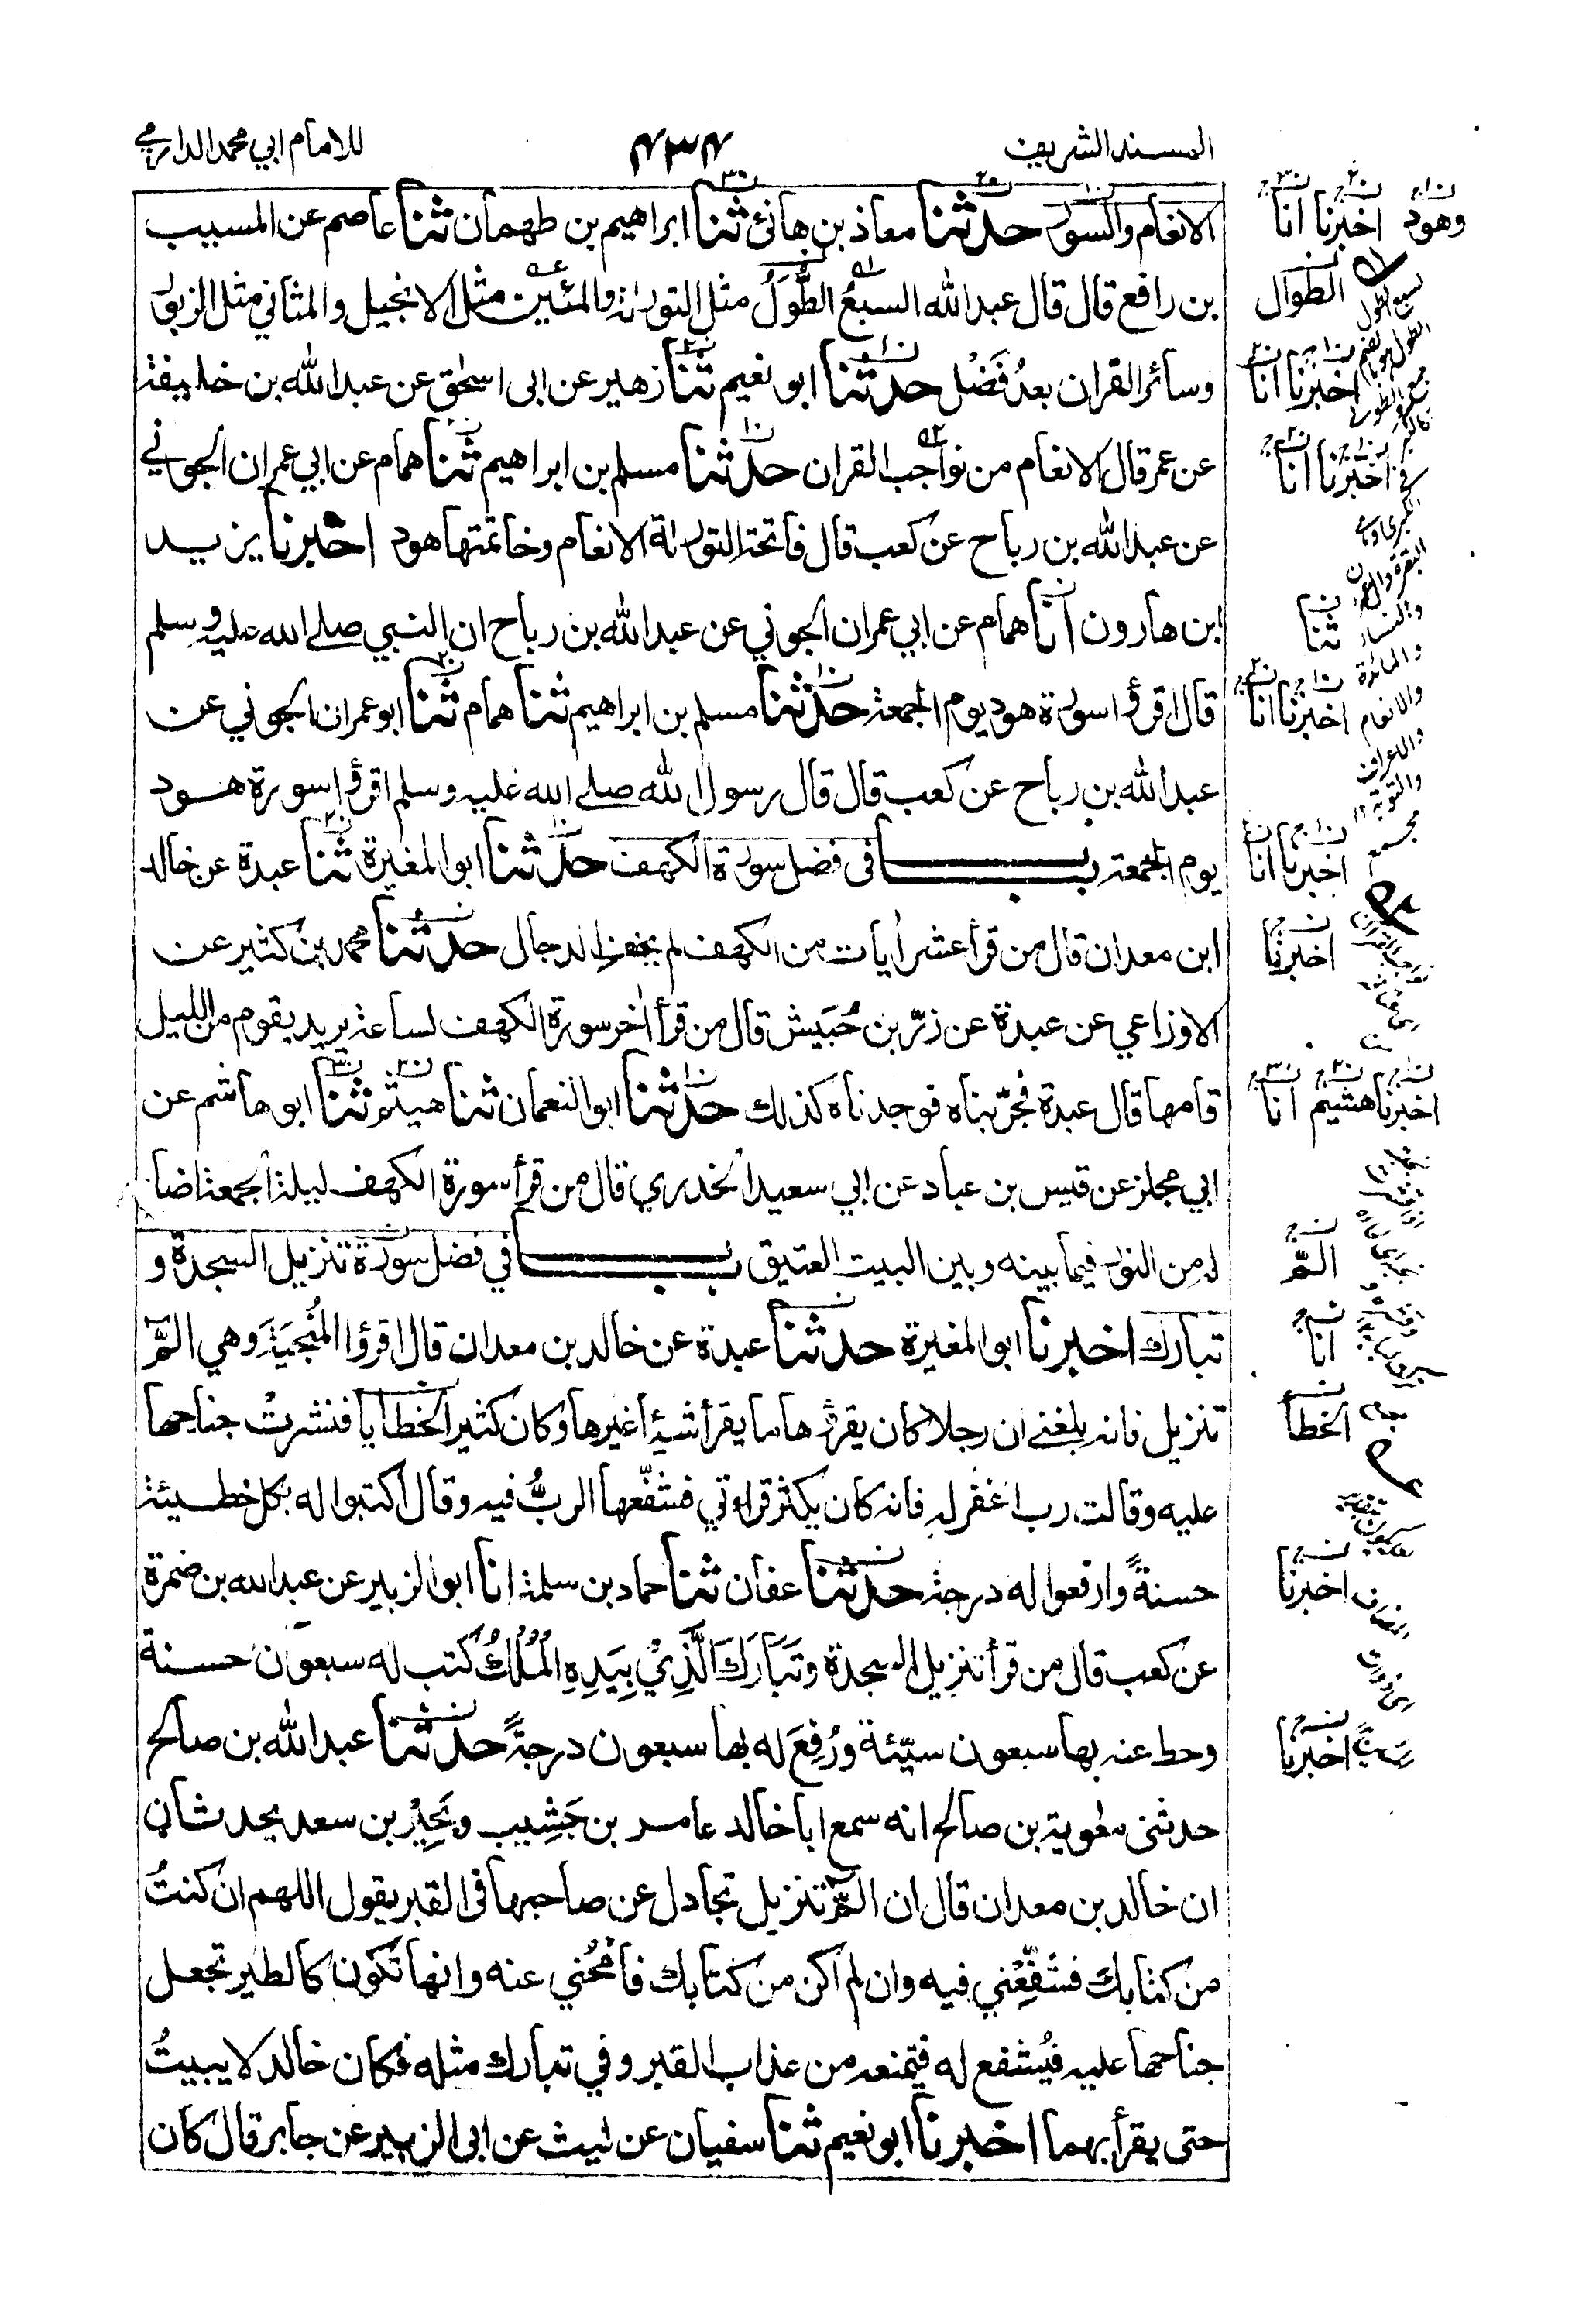 المسند الشريف ٤٣٤ للامام ابي محمد الدارمي
الانعام والسور حدثنا معاذ بن هانئ ثنا ابراهيم بن طهمان ثنا عاصم عن المسيب
بن رافع قال قال عبد الله السبعُ الطُّوَلُ مثل التورٰىة والمئين مثل الانجيل والمثاني مثل الزبور
وسائر القران بعدُ فَضْل حدثنا ابو نعيم ثنا زهير عن ابى اسحٰق عن عبد الله بن خليفة
عن عمر قال الانعام من نواجب القران حدثنا مسلم بن ابراهيم ثنا همام عن ابي عمران الجوني
عن عبد الله بن رباح عن كعب قال فاتحة التورٰىة الانعام وخاتمتها هود اخبرنا يزيد
ابن هارون انا همام عن ابي عمران الجوني عن عبد الله بن رباح ان النبي صلى الله عليه وسلم
قال اقرؤا سورة هود يوم الجمعة حدثنا مسلم بن ابراهيم ثنا همام ثنا ابو عمران الجوني عن
عبد الله بن رباح عن كعب قال قال رسول الله صلى الله عليه وسلم اقرؤا سورة هود
يوم الجمعة باب فى فضل سورة الكهف حدثنا ابو المغيرة ثنا عبدة عن خالد
ابن معدان قال من قرأ عشر اٰيات من الكهف لم يخف الدجال حدثنا محمد بن كثير عن
الاوزاعي عن عبدة عن زرّ بن حُبَيش قال من قرأ اٰخر سورة الكهف لساعة يريد يقوم من الليل
قامها قال عبدة فجرّبناه فوجدناه كذلك حدثنا ابو النعمان ثنا هيثم ثنا ابو هاشم عن
ابي مجلز عن قيس بن عباد عن ابي سعيد الخدري قال من قرأ سورة الكهف ليلة الجمعة اضاء
له من النور فيما بينه وبين البيت العتيق باب في فضل سورة تنزيل السجدة و
تبارك اخبرنا ابو المغيرة حدثنا عبدة عن خالد بن معدان قال اقرؤا المُنْجِيَةَ وهي الٓمّ
تنزيل فانه بلغني ان رجلا كان يقرؤها ما يقرأ شيئا غيرها وكان كثير الخطايا فنشرتْ جناحها
عليه وقالت رب اغفر له فانه كان يكثر قراءتي فشفّعها الربُّ فيه وقال اكتبوا له بكل خطيئة
حسنةً وارفعوا له درجة حدثنا عفان ثنا حماد بن سلمة انا ابو الزبير عن عبد الله بن ضمرة
عن كعب قال من قرأ تنزيل السجدة وتَبَارَكَ الَّذِيْ بِيَدِهِ الْمُلْكُ كتب له سبعون حسنة
وحط عنه بها سبعون سيّئة ورُفِعَ له بها سبعون درجةً حدثنا عبد الله بن صالح
حدثنى معٰوية بن صالح انه سمع ابا خالد عامر بن جَشِيب وبَحِيْر بن سعد يحدثان
ان خالد بن معدان قال ان الٓمّ تنزيل تجادل عن صاحبها فى القبر يقول اللهم ان كنتُ
من كتابك فشَفِّعْني فيه وان لم اكن من كتابك فامْحُني عنه وانها تكون كالطير تجعل
جناحها عليه فيُشفع له فيمنعه من عذاب القبر وفي تبارك مثله فكان خالد لا يبيتُ
حتى يقرأ بهما اخبرنا ابو نعيم ثنا سفيان عن ليث عن ابى الزبير عن جابر قال كان
وهود اخبرنا انا
الطوال
اخبرنا انا
اخبرنا انا
البقرة وال عمران
والنساء ثنا
والمائدة
والانعام اخبرنا انا
والاعراف
والتوبة ١٢
مجمع
اخبرنا انا
اخبرنا
اخبرنا هشيم انا
الٓمّ
انا
الخطأ
اخبرنا
اخبرنا